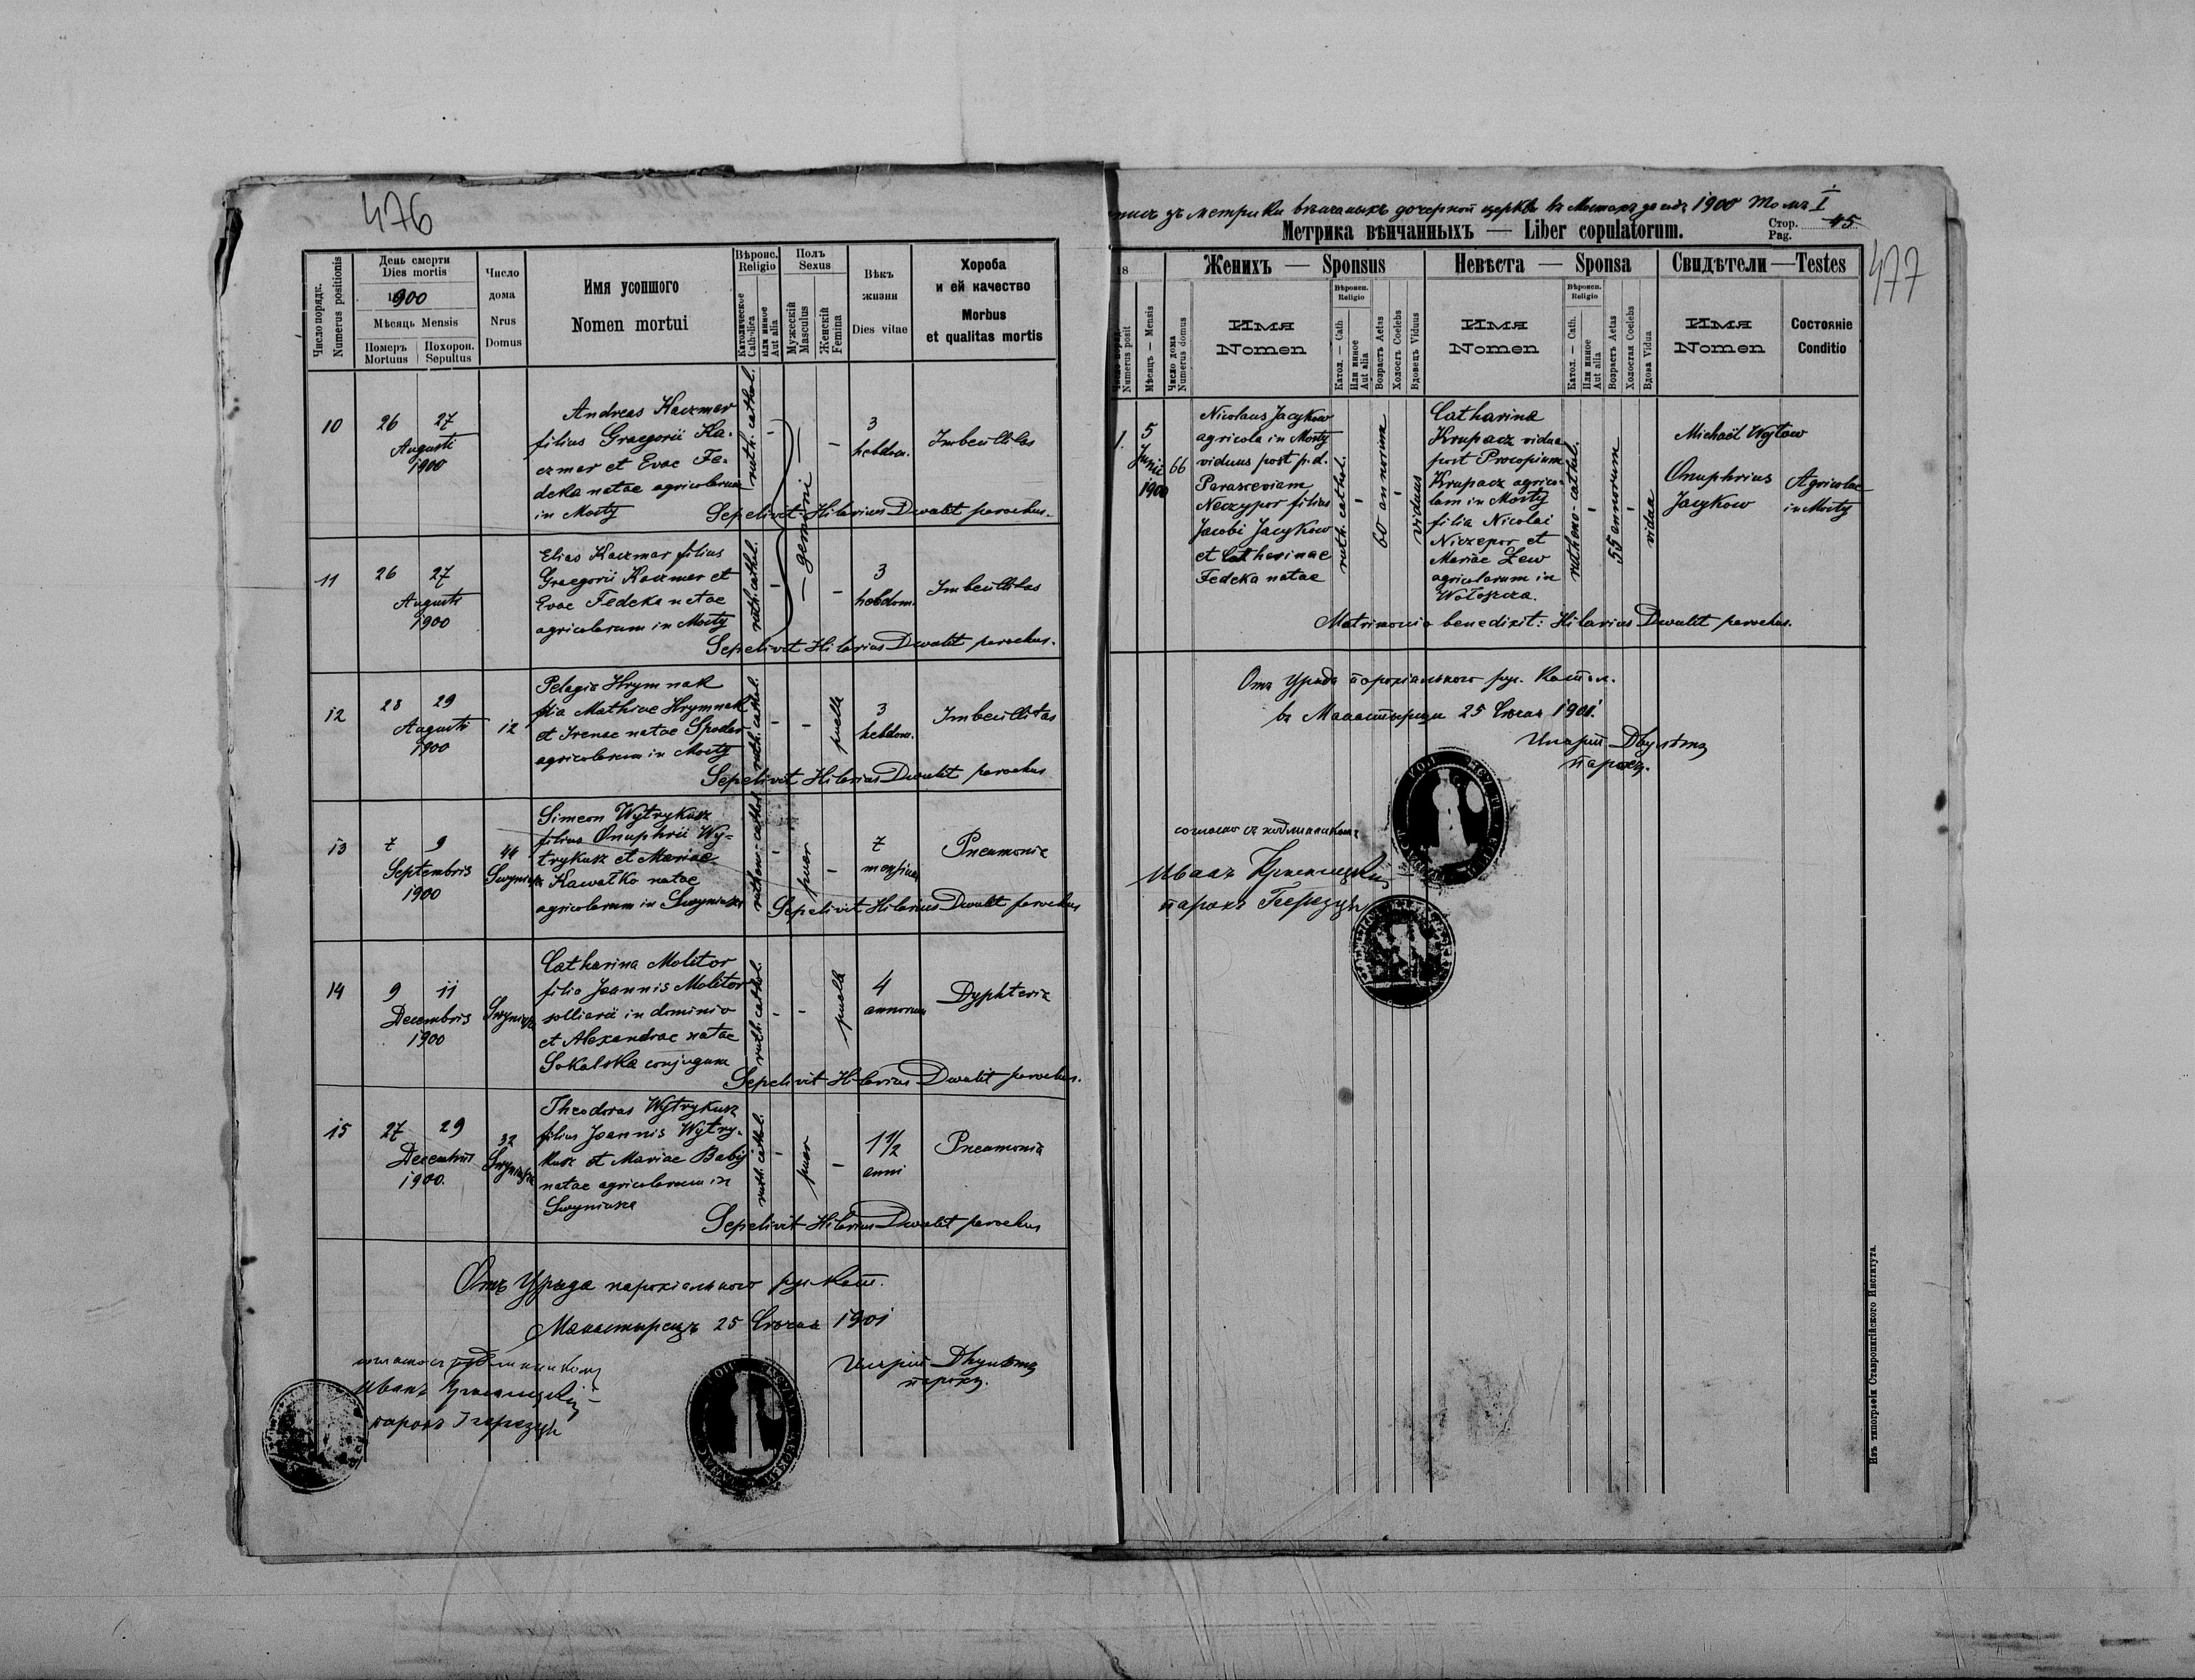 476
Число порядк.
Numerus positionis
День смерти
Dies mortis
1900
Мѣсяць Mensis
Померъ
Mortuus
Похорон.
Sepultus
Число
дома
Nrus
Domus
Имя усопшого
Nomen mortui
Вѣроис.
Religio
Католическое
Catholica
или инное
Aut alia
Полъ
Sexus
Мужескій
Masculus
Женскій
Femina
Вѣкъ
жизни
Dies vitae
Хороба
и ей качество
Morbus
et qualitas mortis
10
26 27
Augusti
1900
Andreas Kaczmar
filius Graegorii Ka-
czmar et Evae Fe-
deka natae agricolarum
in Mosty
ruth. cathol.
-
- gemini -
-
3
hebdom.
Imbecillitas
Sepelivit: Hilarius Dwulit parochus.
11
26 27
Augusti
1900
Elias Kaczmar filius
Graegorii Kaczmar et
Evae Fedeka natae
agricolarum in Mosty
ruth. cathol.
-
-
3
hebdom.
Imbecillitas
Sepelivit Hilarius Dwulit parochus.
12
28 29
Augusti
1900
12
Pelagia Hrymnak
filia Mathiae Hrymnak
et Irenae natae Spodar
agricolarum in Mosty
ruth. cathol.
-
-
puella
3
hebdom.
Imbecillitas
Sepelivit Hilarius Dwulit parochus
13
7 9
Septembris
1900
44
Simeon Wytrykusz
filius Onuphrii Wy-
trykusz et Mariae
Kawałko natae
agricolarum in
rutheno-cathol.
-
puer
-
7
mensium
Pneumonia
Sepelivit Hilarius Dwulit parochus
14
9 11
Decembris
1900
Catharina Molitor
filia Joannis Molitor
in dominio
et Alexandrae natae
Sokalska conjugum
ruth. cathol.
-
-
puella
4
annorum
Dyphteria
Sepelivit Hilarius Dwulit parochus.
15
27 29
Decembris
1900.
32
Theodorus Wytrykusz
filius Joannis Wytry-
kusz et Mariae Babij
natae agricolarum in
ruth. cathol.
-
puer
-
1 1/2
anni
Pneumonia
Sepelivit Hilarius Dwulit parochus
Отъ Уряда парохіального рус. кат.
25 Січня 1901
Иларій Двулитъ
парохъ.
Иванъ
парохъ
метрики вѣнчаныхъ дочерной церкви въ Мостахъ за годъ 1900 Томъ I
Метрика вѣнчанныхъ — Liber copulatorum.
Стор.
Pag. 45
477
18
Numerus posit
Мѣсяць — Mensis
Число дома
Numerus domus
Женихъ — Sponsus
Имя
Nomen
Вѣроисп.
Religio
Катол. — Cath.
Или инное
Aut alia
Возрастъ Aetas
Холостъ Coelebs
Вдовецъ Viduus
Невѣста — Sponsa
Имя
Nomen
Вѣроисп.
Religio
Катол. — Cath.
Или инное
Aut alia
Возрастъ Aetas
Холостая Coelebs
Вдова Vidua
Свидѣтели — Testes
Имя
Nomen
Состояніе
Conditio
1.
5
Junii
1900
66
Nicolaus Jacykow
agricola in Mosty
viduus post p.d.
Parasceviam
Neczypor filius
Jacobi Jacykow
et Catharinae
Fedeka natae
ruth. cathol.
-
60 annorum
-
viduus
Catharina
Krupacz vidua
post Procopium
Krupacz agrico-
lam in Mosty
filia Nicolai
Niczepor et
Mariae Lew
agricolarum in
Wołoszcza.
rutheno-cathol.
-
55 annorum
-
vidua
Michaël Wojtow
Onuphrius
Jacykow
Agricolae
in Mosty
Matrimonio benedixit: Hilarius Dwulit parochus.
Отъ Уряда парохіального рус. Катол.
25 Січня 1901.
Иларій Двулитъ
парохъ.
согласно съ подлинникомъ
Иванъ
парохъ
Изъ типографіи Ставропигійского Института.